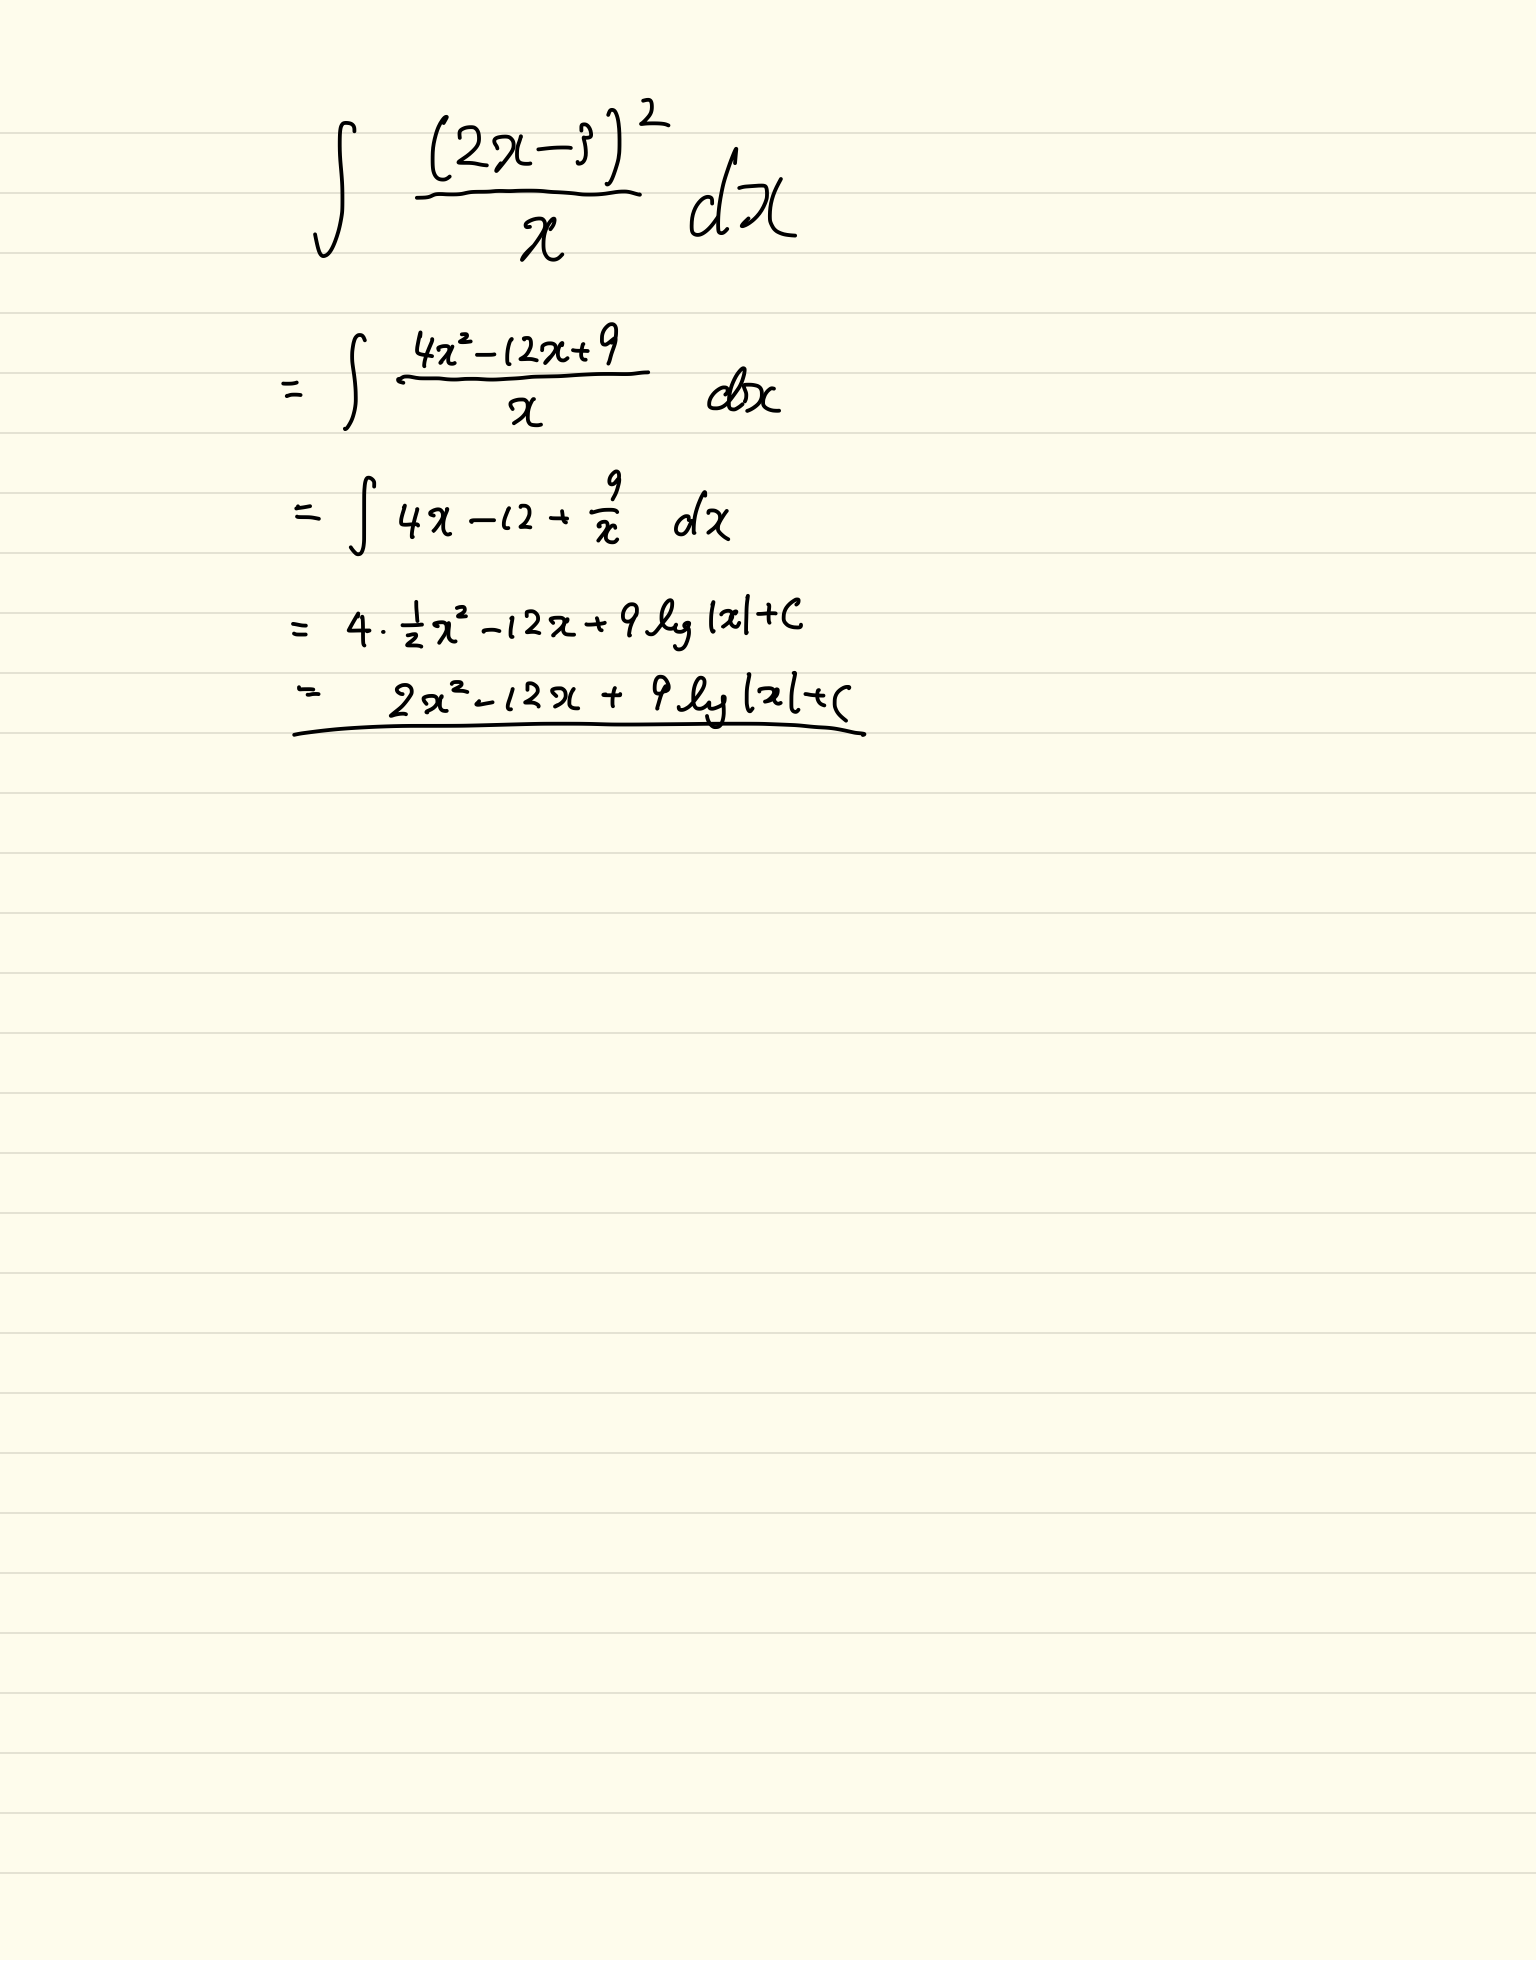 ∫ (2x-3)² / x dx
= ∫ (4x²-12x+9) / x dx
= ∫ 4x-12+9/x dx
= 4·1/2x²-12x+9log|x|+C
= 2x²-12x+9log|x|+C